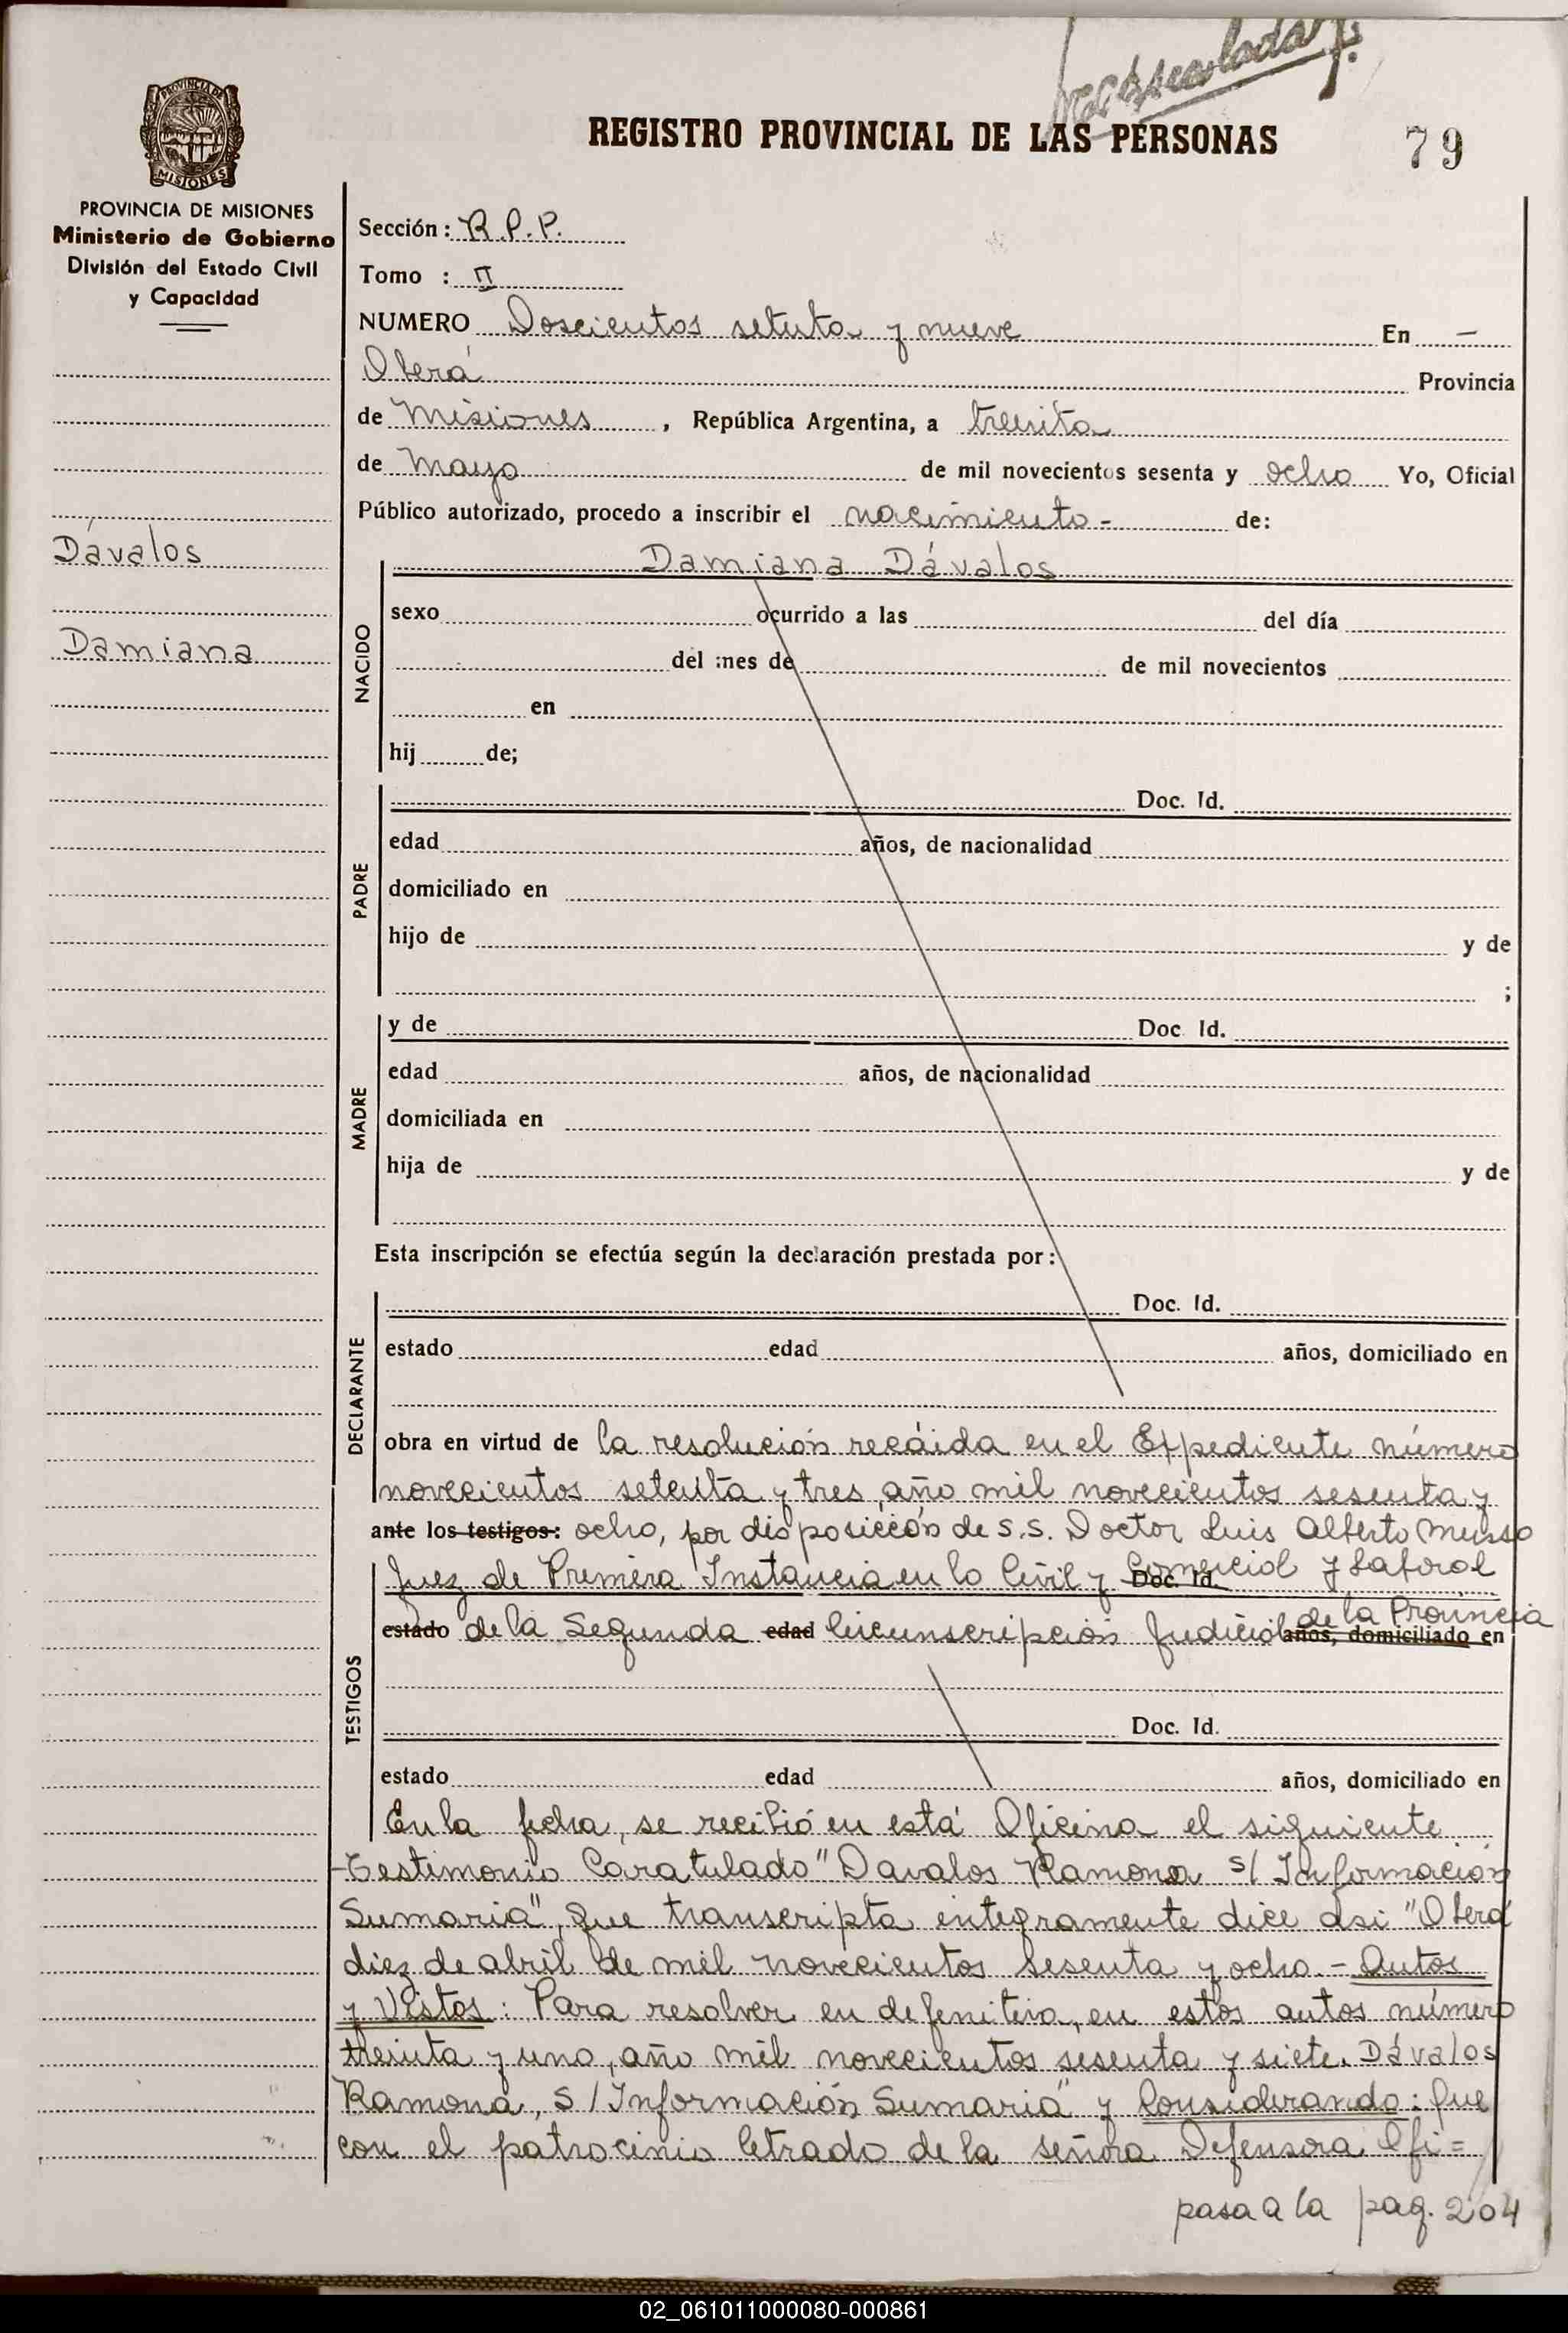 REGISTRO PROVINCIAL DE LAS PERSONAS
79
PROVINCIA DE
MISIONES
PROVINCIA DE MISIONES
Ministerio de Gobierno
División del Estado Civil
y Capacidad
Dávalos
Damiana
Sección: R.P.P.
Tomo : II
NUMERO Doscientos setenta y nueve En —
Oberá Provincia
de Misiones , República Argentina, a treinta
de Mayo de mil novecientos sesenta y ocho Yo, Oficial
Público autorizado, procedo a inscribir el nacimiento - de:
Damiana Dávalos
NACIDO
sexo ocurrido a las del día
del mes de de mil novecientos
en
hij de;
PADRE
Doc. Id.
edad años, de nacionalidad
domiciliado en
hijo de y de
;
MADRE
y de Doc. Id.
edad años, de nacionalidad
domiciliada en
hija de y de
Esta inscripción se efectúa según la declaración prestada por:
DECLARANTE
Doc. Id.
estado edad años, domiciliado en
obra en virtud de la resolución recáida en el Expediente número
novecientos setenta y tres, año mil novecientos sesenta y
ante los testigos: ocho, por disposicción de S.S. Doctor Luis Alberto Musso
Juez de Primera Instancia en lo Civil y Comercial y Laboral
Doc. Id.
estado de la Segunda edad Circunscripción Judicial de la Provincia
años, domiciliado en
TESTIGOS
Doc. Id.
estado edad años, domiciliado en
En la fecha, se recibió en está Oficina el siguiente
Testimonio Caratulado "Davalos Ramona s/ Información
Sumaria", que transcripta integramente dice asi "Oberá
diez de abril de mil novecientos sesenta y ocho.- Autos
y Vistos: Para resolver en defenitiva, en estos autos número
treinta y uno, año mil novecientos sesenta y siete. Dávalos
Ramona, S/Información Sumaria" y Considerando: Que
con el patrocinio letrado de la señora Defensora Ofi=
pasa a la pag. 204
02_061011000080-000861